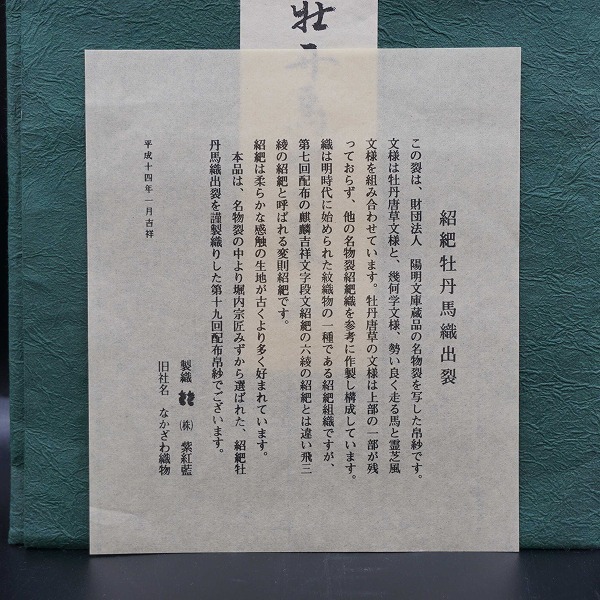 牡丹
紹紦牡丹馬織出裂
この裂は、財団法人 陽明文庫蔵品の名物裂を写した帛紗です。
文様は牡丹唐草文様と、幾何学文様、勢い良く走る馬と霊芝風
文様を組み合わせています。牡丹唐草の文様は上部の一部が残
っておらず、他の名物裂紹紦織を参考に作製し構成しています。
織は明時代に始められた紋織物の一種である紹紦組織ですが、
第七回配布の麒麟吉祥文字段文紹紦の六綾の紹紦とは違い飛三
綾の紹紦と呼ばれる変則紹紦です。
紹紦は柔らかな感触の生地が古くより多く好まれています。
本品は、名物裂の中より堀内宗匠みずから選ばれた、紹紦牡
丹馬織出裂を謹製織りした第十九回配布帛紗でございます。
製織 (株) 紫紅藍
旧社名 なかざわ織物
平成十四年一月吉祥